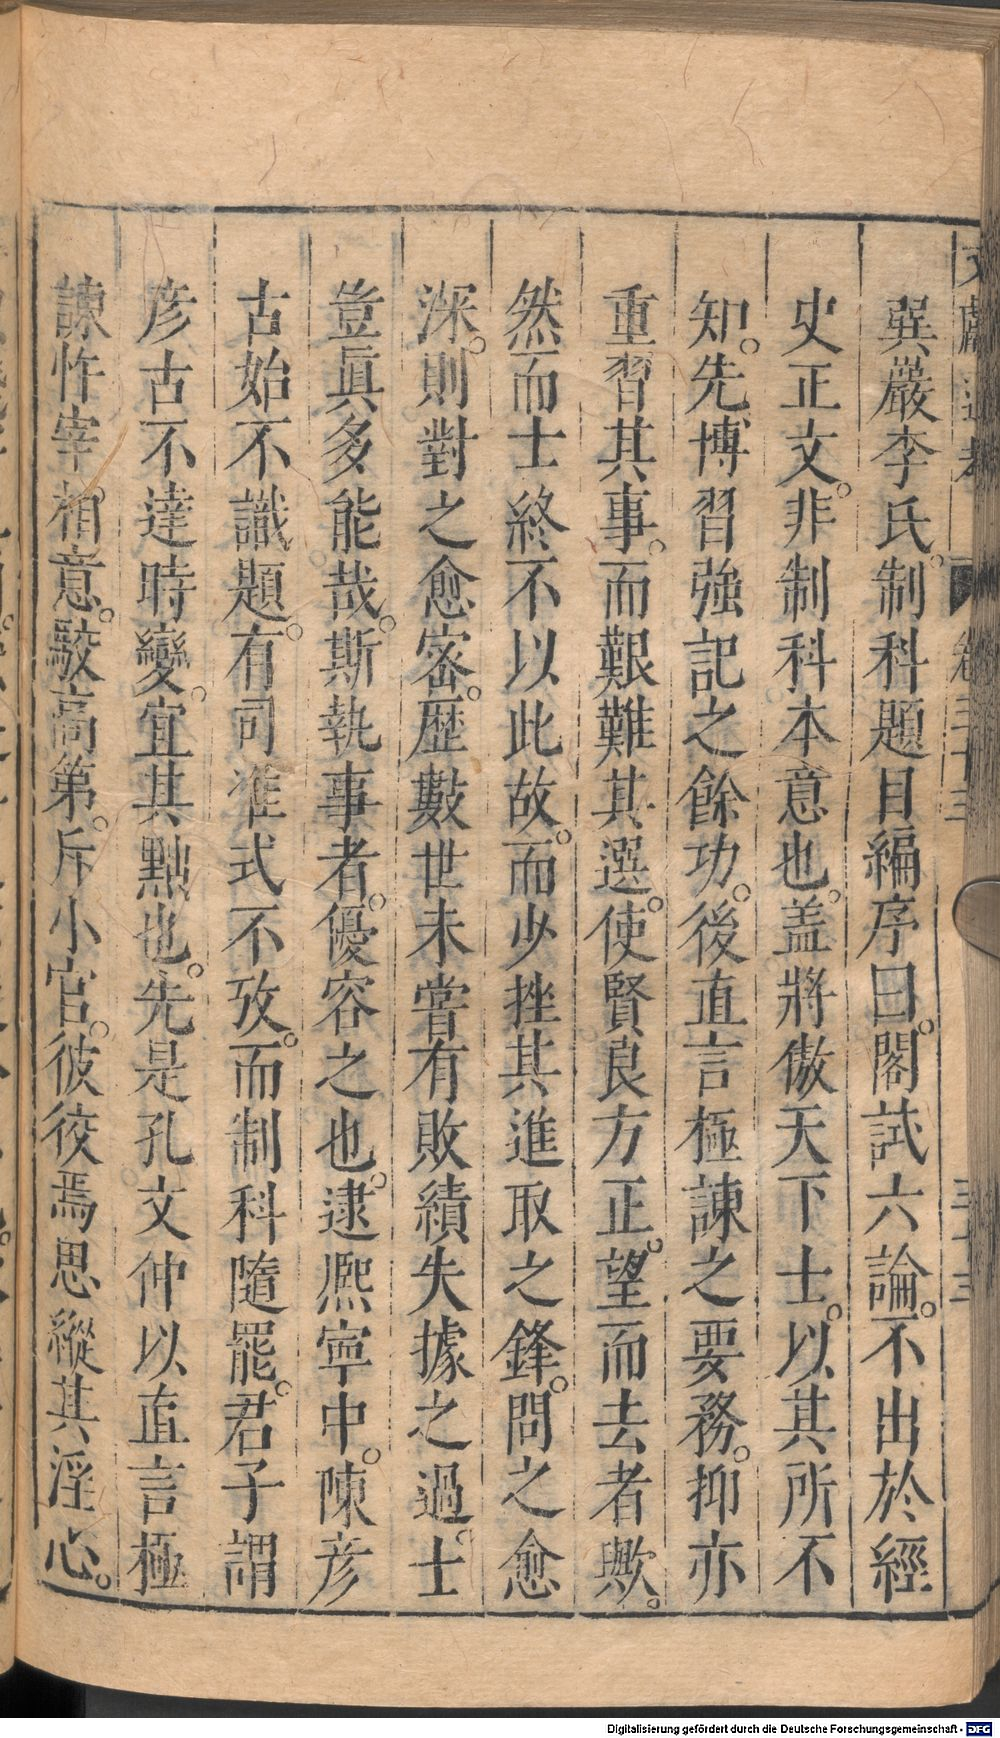 巽嚴李氏。制科題目編序曰。閣試六論。不出於經
史正文。非制科本意也。盖將傲天下士。以其所不
知。先博習強記之餘功。後直言極諫之要務。抑亦
重習其事。而艱難其選。使賢良方正。望而去者歟。
然而士終不以此故。而少挫其進取之鋒。問之愈
深。則對之愈密。歴數世未嘗有敗績失據之過。士
豈眞多能哉。斯執事者。優容之也。逮熈寧中。陳彦
古始不識題。有司准式不攷。而制科隨罷。君子謂
彦古不達時變。宜其黜也。先是孔文仲以直言極
諫忤宰相意。駮高第。斥小官。彼彼焉思縱其淫心。
卷三十三
三十三
Digitalisierung gefördert durch die Deutsche Forschungsgemeinschaft - DFG